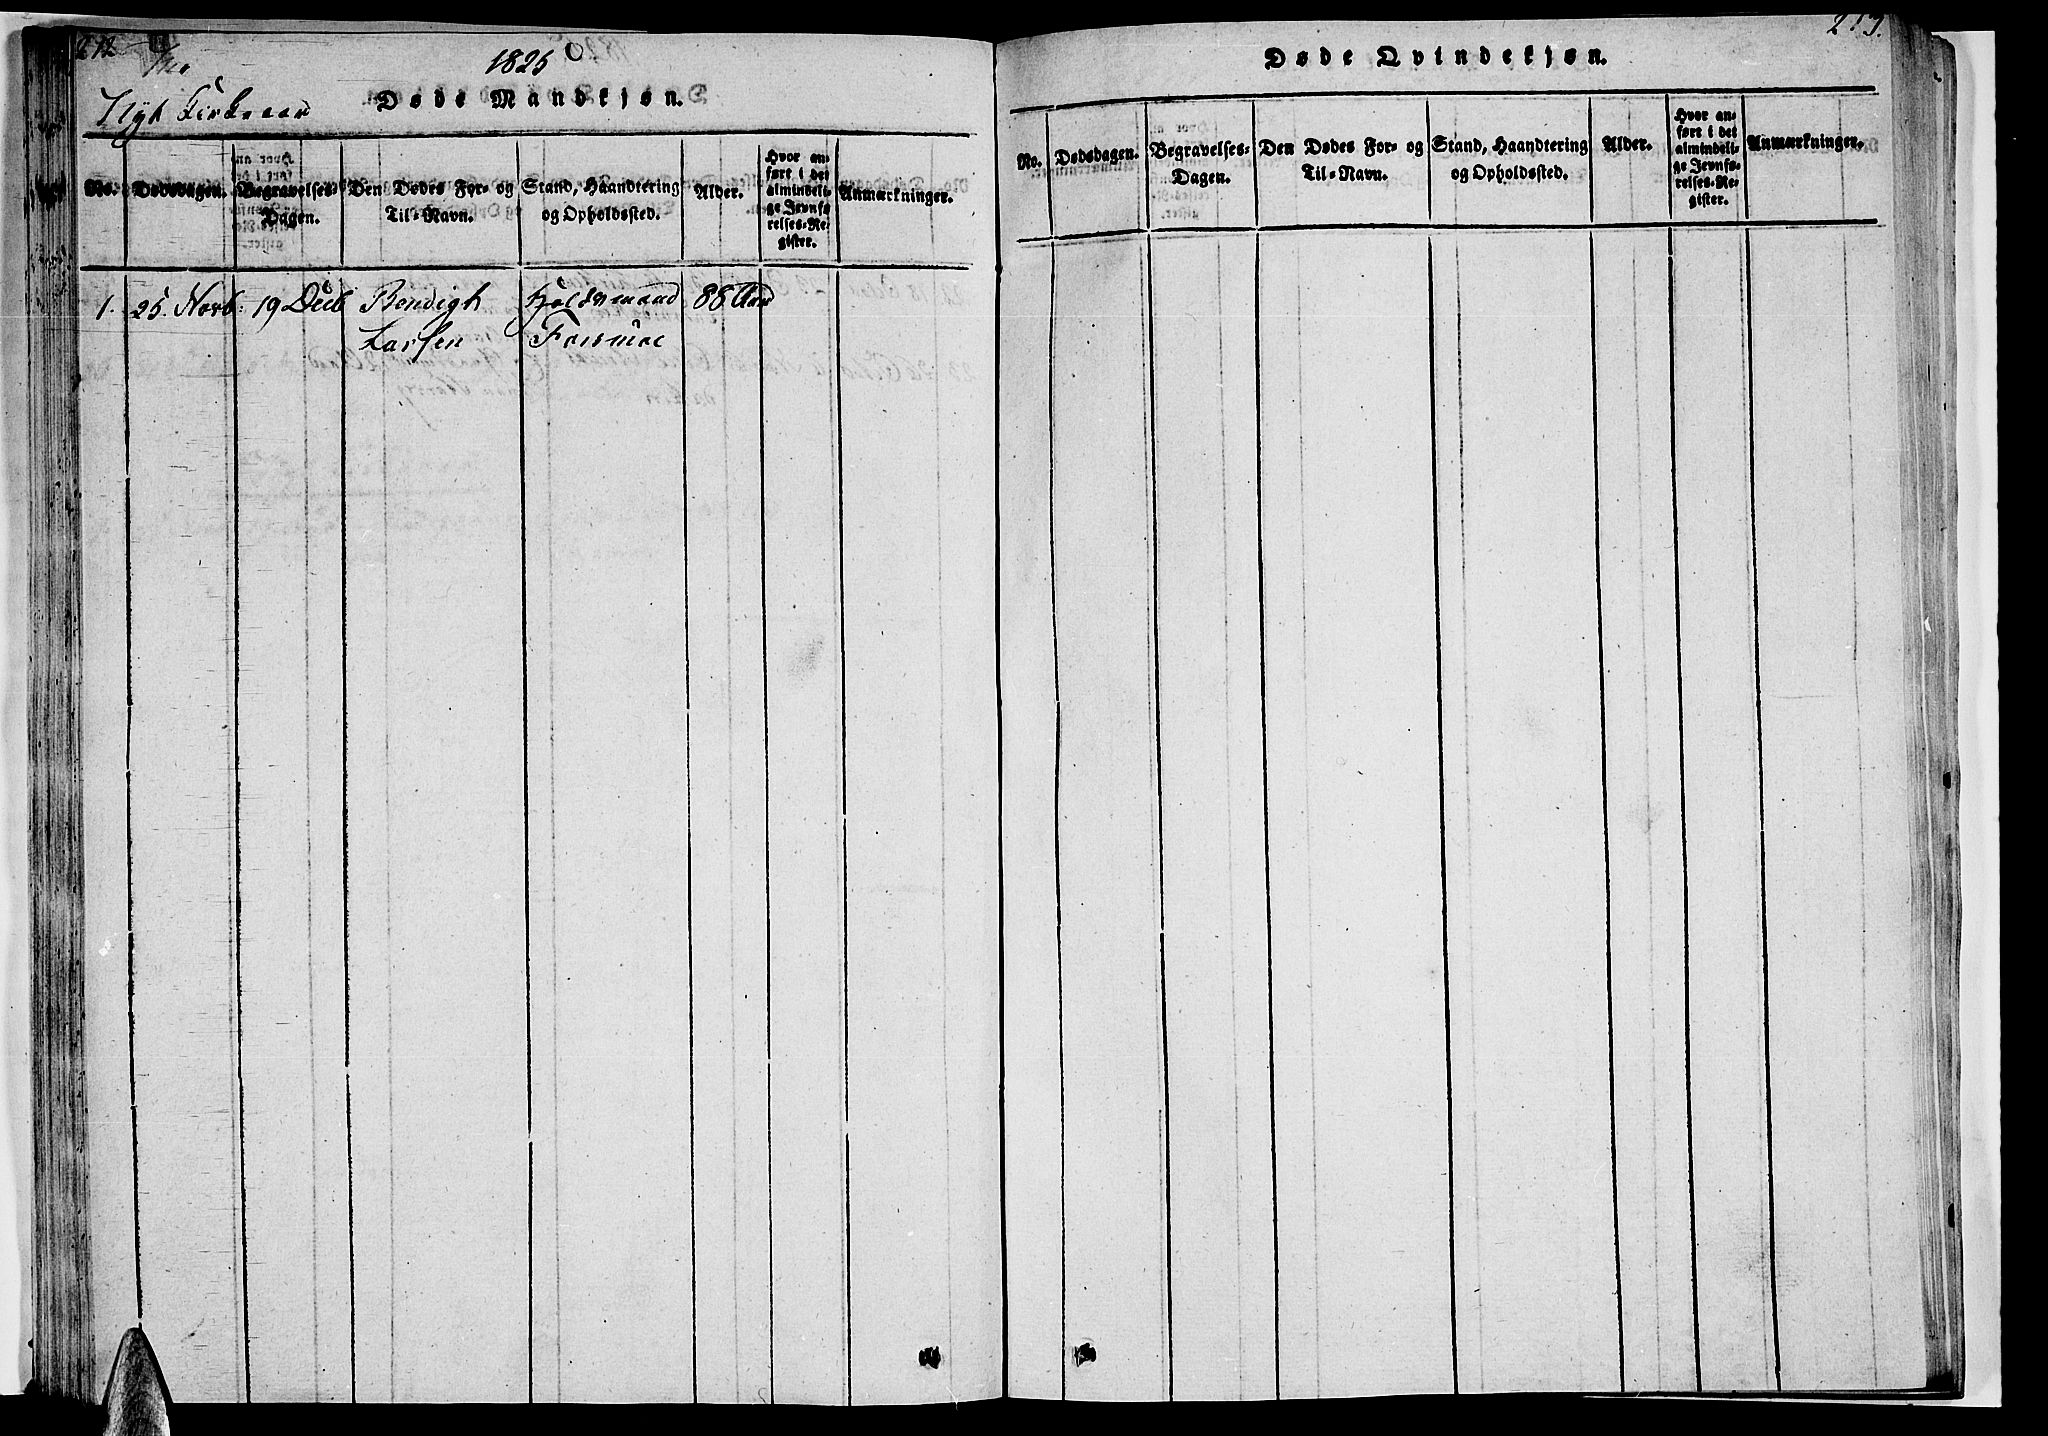 212
1825
Nyt Kirkeaar
Døde Mandkjøn.
No.
Dødsdagen.
Begravelses-
Dagen.
Den Dødes For- og
Til-Navn.
Stand, Haandtering
og Opholdssted.
Alder.
Hvor an-
ført i det
almindeli-
ge Jevnfø-
relses-Re-
gister.
Anmærkninger.
1. 25. Novb. 19 Decb Bendigt 88 Aar
Larsen
213.
Døde Qvindekjøn.
No.
Dødsdagen.
Begravelses-
Dagen.
Den Dødes For- og
Til-Navn.
Stand, Haandtering
og Opholdssted.
Alder.
Hvor an-
ført i det
almindeli-
ge Jevnfø-
relses-Re-
gister.
Anmærkninger.